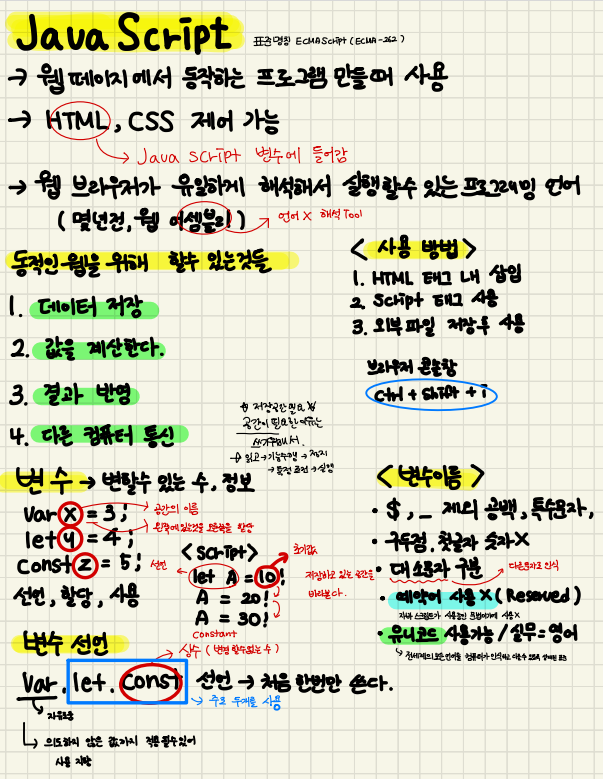 Java Script 표준명칭 ECMAScript (ECMA-262)
→ 웹 페이지에서 동작하는 프로그램 만들때 사용
→ HTML, CSS 제어 가능
→ Java Script 변수에 들어감
→ 웹 브라우저가 유일하게 해석해서 실행할수 있는 프로그래밍 언어
(몇년전, 웹 어셈블리!) → 언어 X 해석 Tool
동적인 웹을 위해 할수 있는것들
1. 데이터 저장
2. 값을 계산한다.
3. 결과 반영
4. 다른 컴퓨터 통신
<사용 방법>
1. HTML 태그 내 삽입
2. Script 태그 사용
3. 외부파일 저장후 사용
브라우저 콘솔창
Ctrl + Shift + i
저장공간 필요
공간이 필요한 이유는
→ 실행
변수 → 변할수 있는 수, 정보
Var x = 3;
let y = 4;
Const z = 5;
→ 공간의 이름
선언, 할당, 사용
<Script>
선언 let A = 10;
초기값
A = 20;
A = 30;
저장하고 있는 공간을
바라본다.
<변수이름>
• $, _ 제외 공백, 특수문자,
구두점, 첫글자 숫자 X
• 대소문자 구분 → 다른문자로 인식
• 예약어 사용 X (Reserved)
• 유니코드 사용가능 / 실무 = 영어
변수 선언
Constant
상수 (변경 할수없는 수)
Var, let, Const 선언 → 처음 한번만 쓴다.
→ 주로 두개를 사용
→ 자유로움
→ 의도하지 않은 값까지 적용 될수 있어
사용 지양